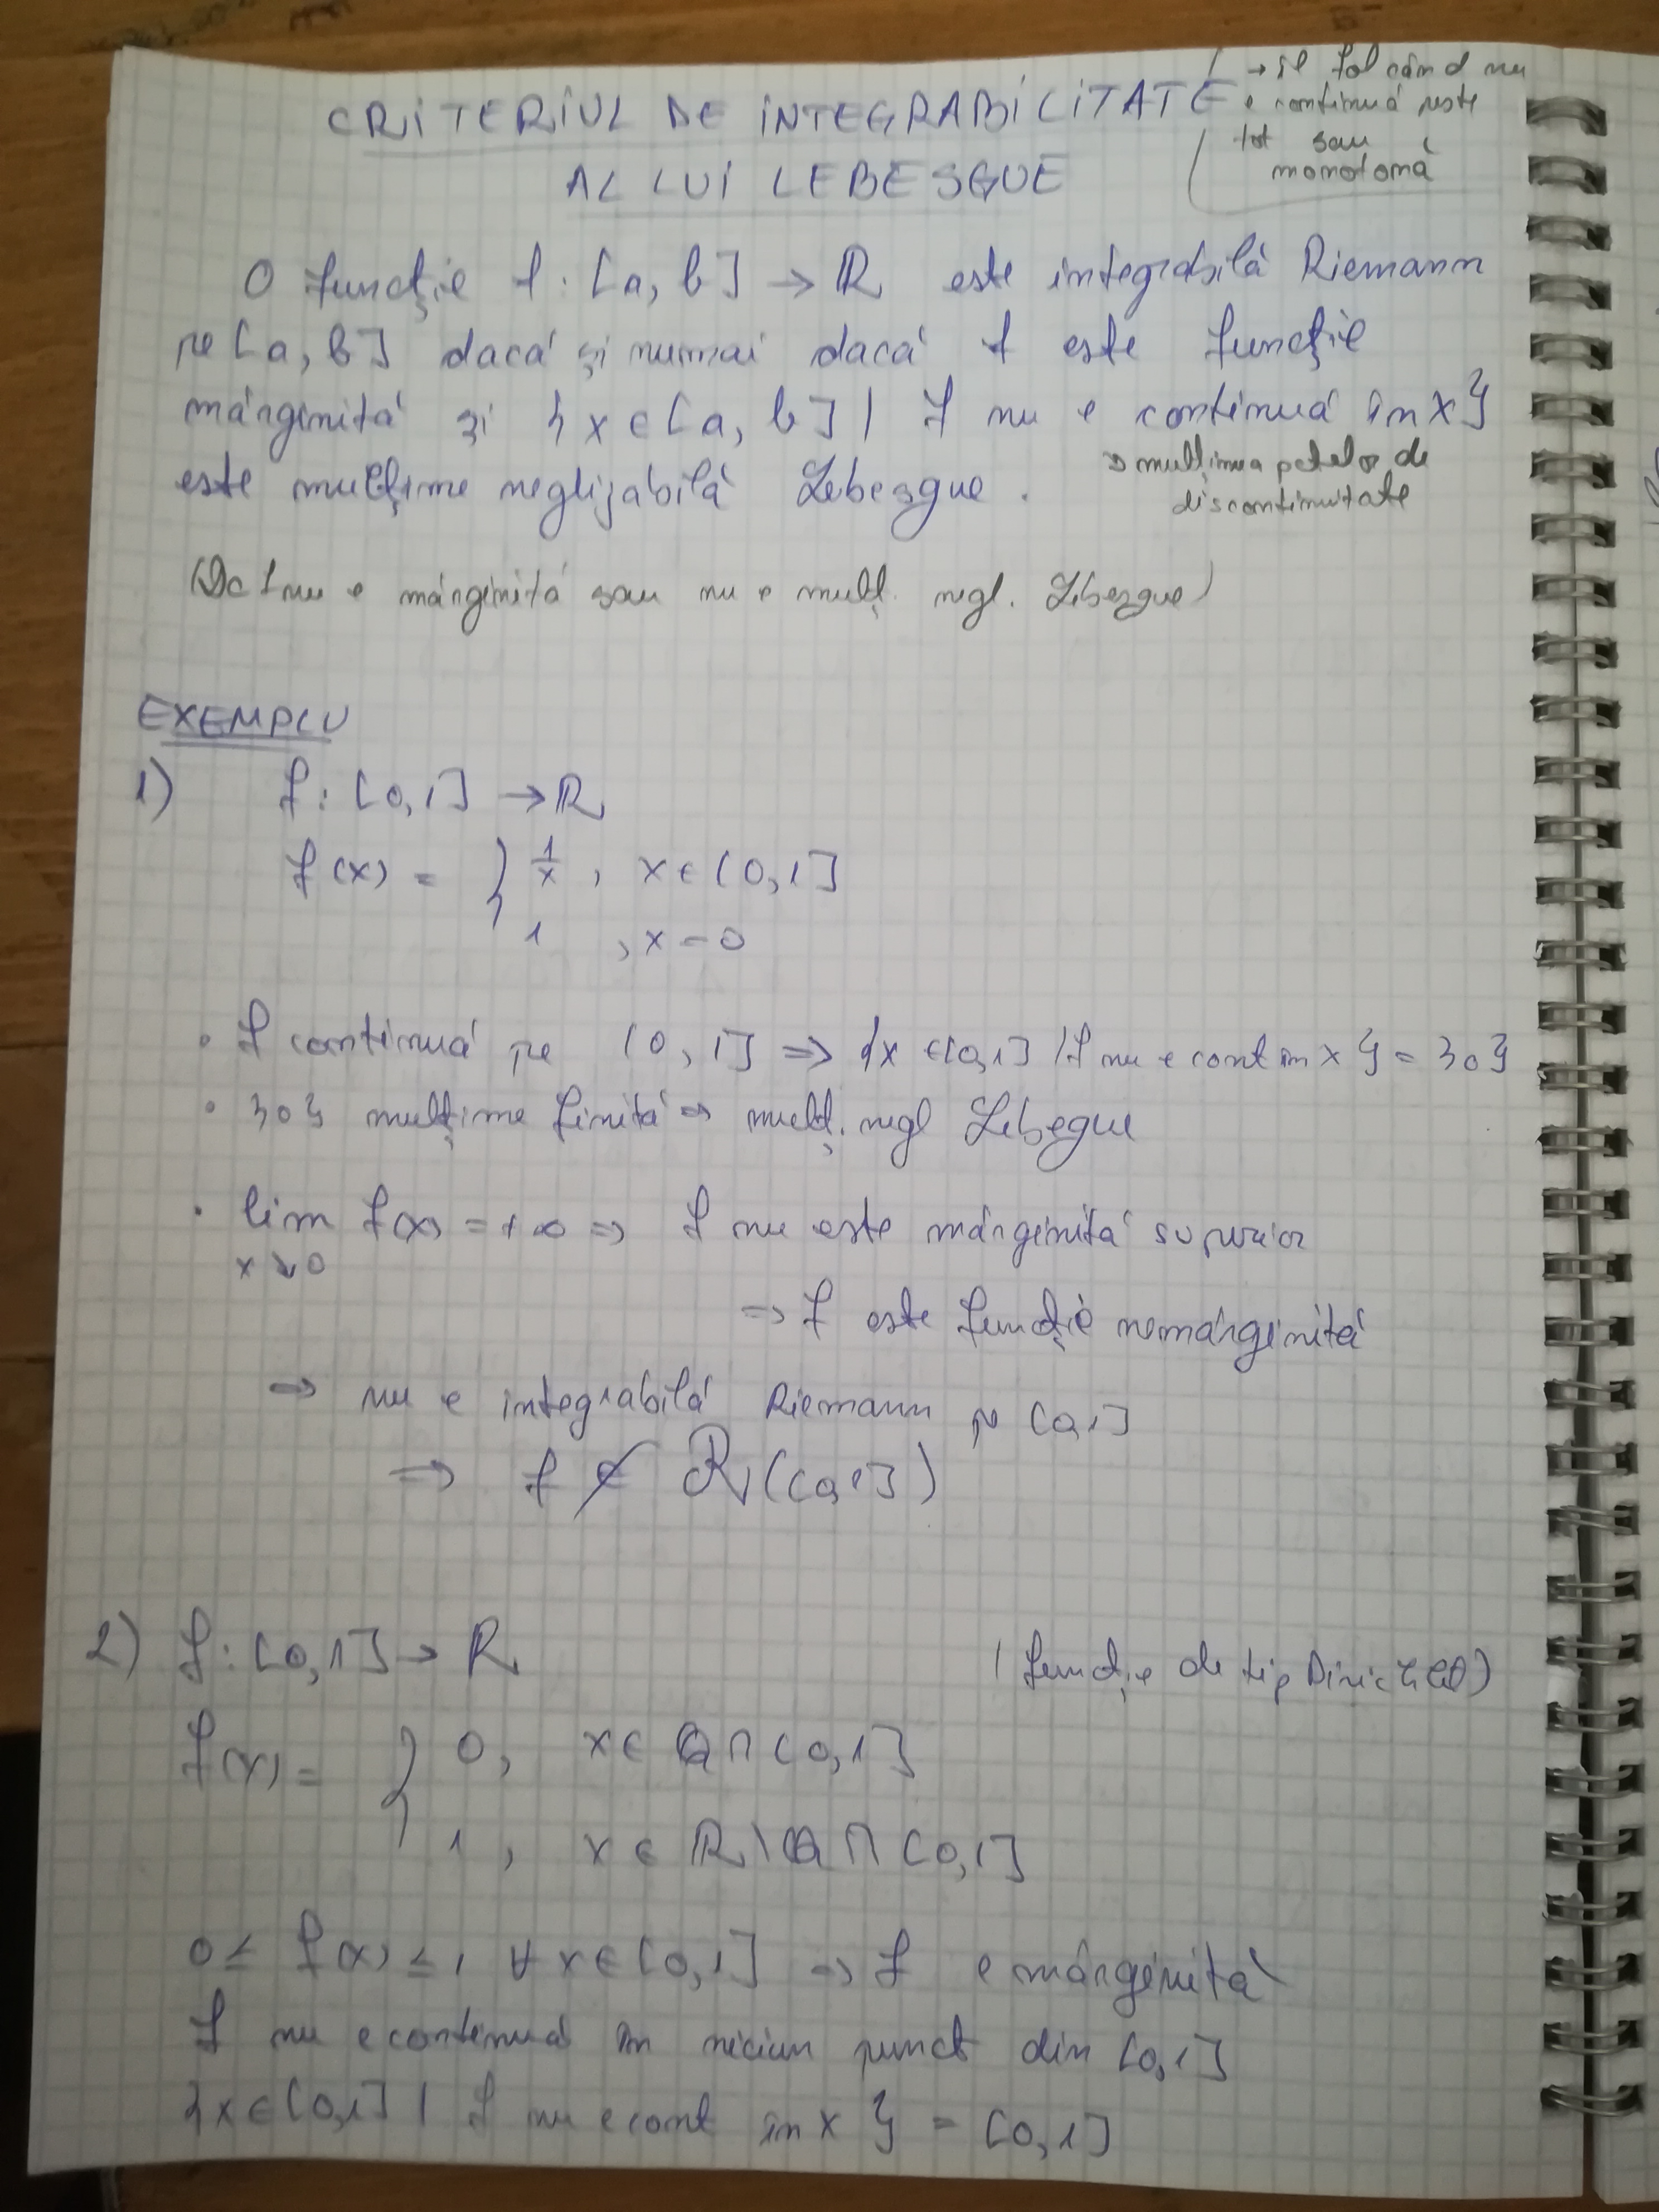 CRITERIUL DE INTEGRABILITATE
AL LUI LEBESGUE
→ îl fol când nu
e continuă peste
tot sau
monotonă
O funcție f : [a, b] → ℝ este integrabilă Riemann
pe [a, b] dacă și numai dacă f este funcție
mărginită și {x ∈ [a, b] | f nu e continuă în x}
este mulțime neglijabilă Lebesgue.
→ mulțimea pctelor de
discontinuitate
(Dc f nu e mărginită sau nu e mulț. negl. Lebesgue)
EXEMPLU
1) f : [0,1] → ℝ
f(x) = { 1/x , x ∈ (0,1]
1 , x = 0
• f continuă pe (0,1] ⇒ {x ∈ [0,1] | f nu e cont în x} = {0}
• {0} mulțime finită ⇒ mulț. negl Lebegue
• lim f(x) = +∞ ⇒ f nu este mărginită superior
x ↘ 0
⇒ f este funcție nemărginită
⇒ nu e integrabilă Riemann pe [0,1]
⇒ f ∉ ℛ([0,1])
2) f : [0,1] → ℝ (funcție de tip Dirichlet)
f(x) = { 0, x ∈ ℚ ∩ [0,1]
1 , x ∈ ℝ \ ℚ ∩ [0,1]
0 ≤ f(x) ≤ 1 ∀ x ∈ [0,1] ⇒ f e mărginită
f nu e continuă în niciun punct din [0,1]
{x ∈ [0,1] | f nu e cont în x} = [0,1]